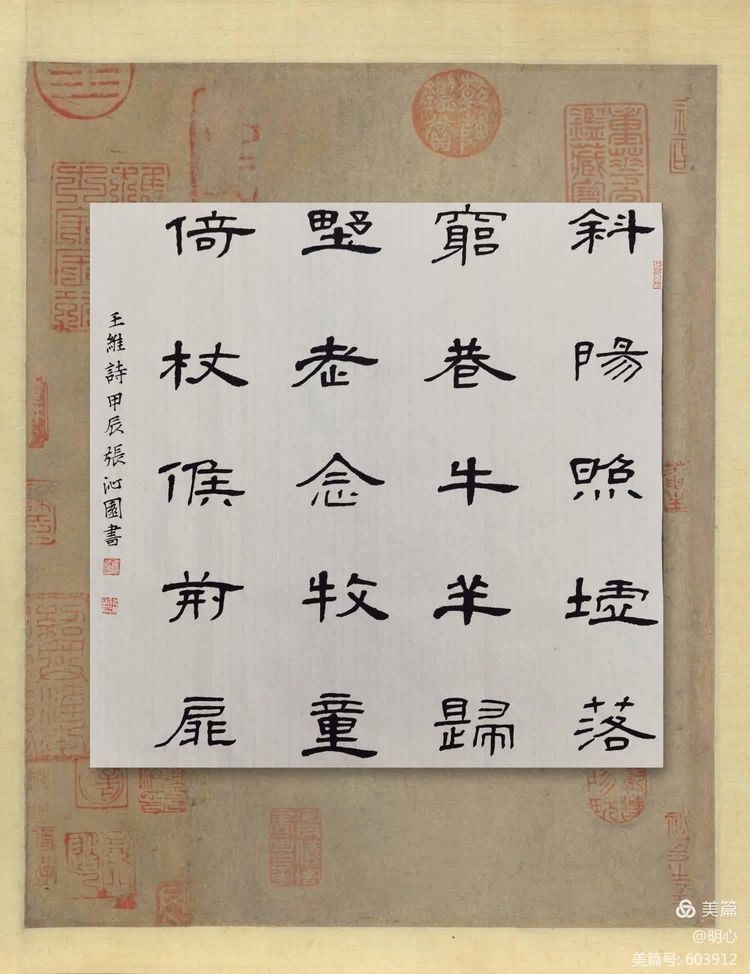 斜陽照墟落
窮巷牛羊歸
野老念牧童
倚杖候荊扉
王維詩甲辰張沁園書
美篇
@明心
美篇号: 603912